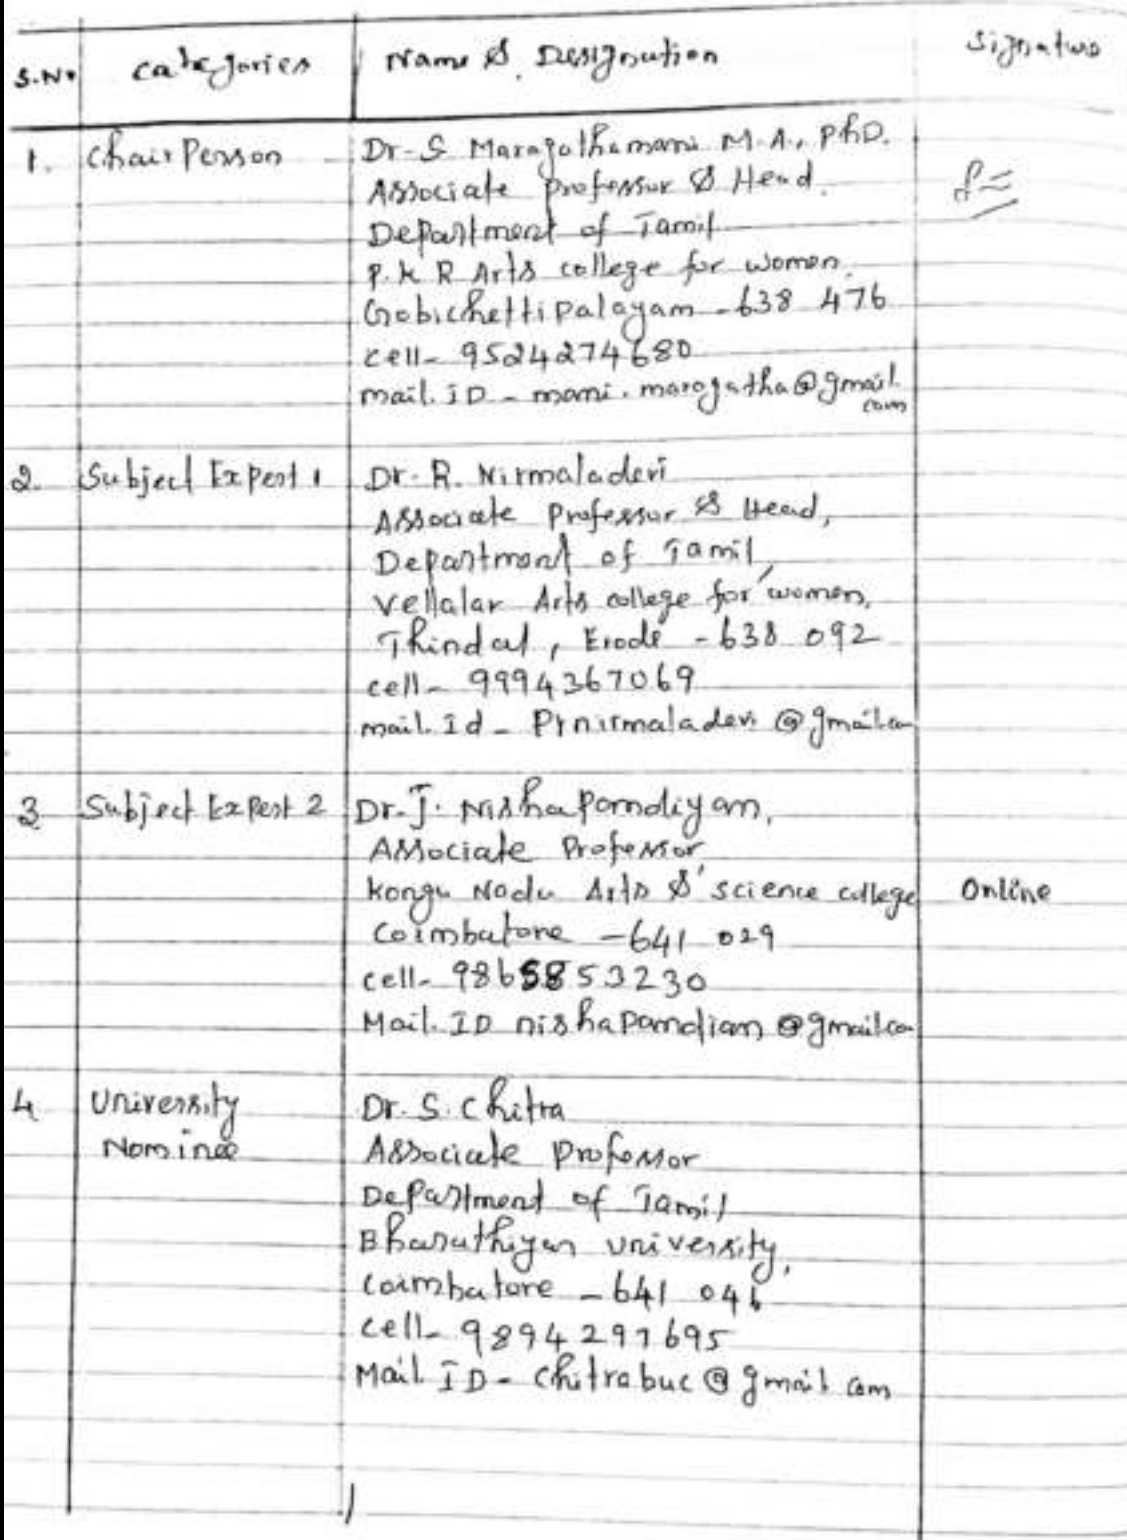 S.No Categories Name & Designation Signature
1. Chair Person Dr. S Maragathamani M.A., PhD.
Associate Professor & Head.
Department of Tamil
P.K R Arts college for women.
Gobichettipalayam - 638 476
cell - 9524274680
mail. ID - mani.maragatha@gmail.
com
2. Subject Expert 1 Dr. R. Nirmaladevi
Associate Professor & Head,
Department of Tamil,
Vellalar Arts college for women,
Thindal, Erode - 638 092
cell - 9994367069
mail. Id - Prnirmaladevi @gmail.co
3 Subject Expert 2 Dr. J. Nishapandiyan,
Associate Professor
Kongu Nadu Arts & science college Online
Coimbatore - 641 029
cell - 9865853230
Mail. ID nishapandian @gmail.co
4 University Dr. S. Chitra
Nominee Associate Professor
Department of Tamil
Bharathiyar University,
Coimbatore - 641 046
Cell - 9894297695
Mail ID - Chitrabuc@gmail com